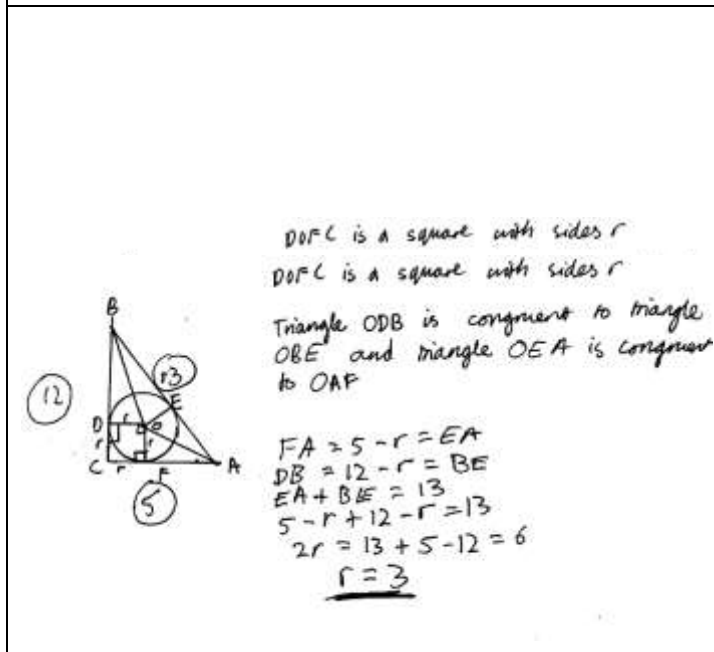 DOFC is a square with sides r
DOFC is a square with sides r
Triangle ODB is congruent to triangle
OBE and triangle OEA is congruent
to OAF
B
12
13
E
D
r
O
r
r
C
r
F
A
5
FA = 5 - r = EA
DB = 12 - r = BE
EA + BE = 13
5 - r + 12 - r = 13
2r = 13 + 5 - 12 = 6
r = 3